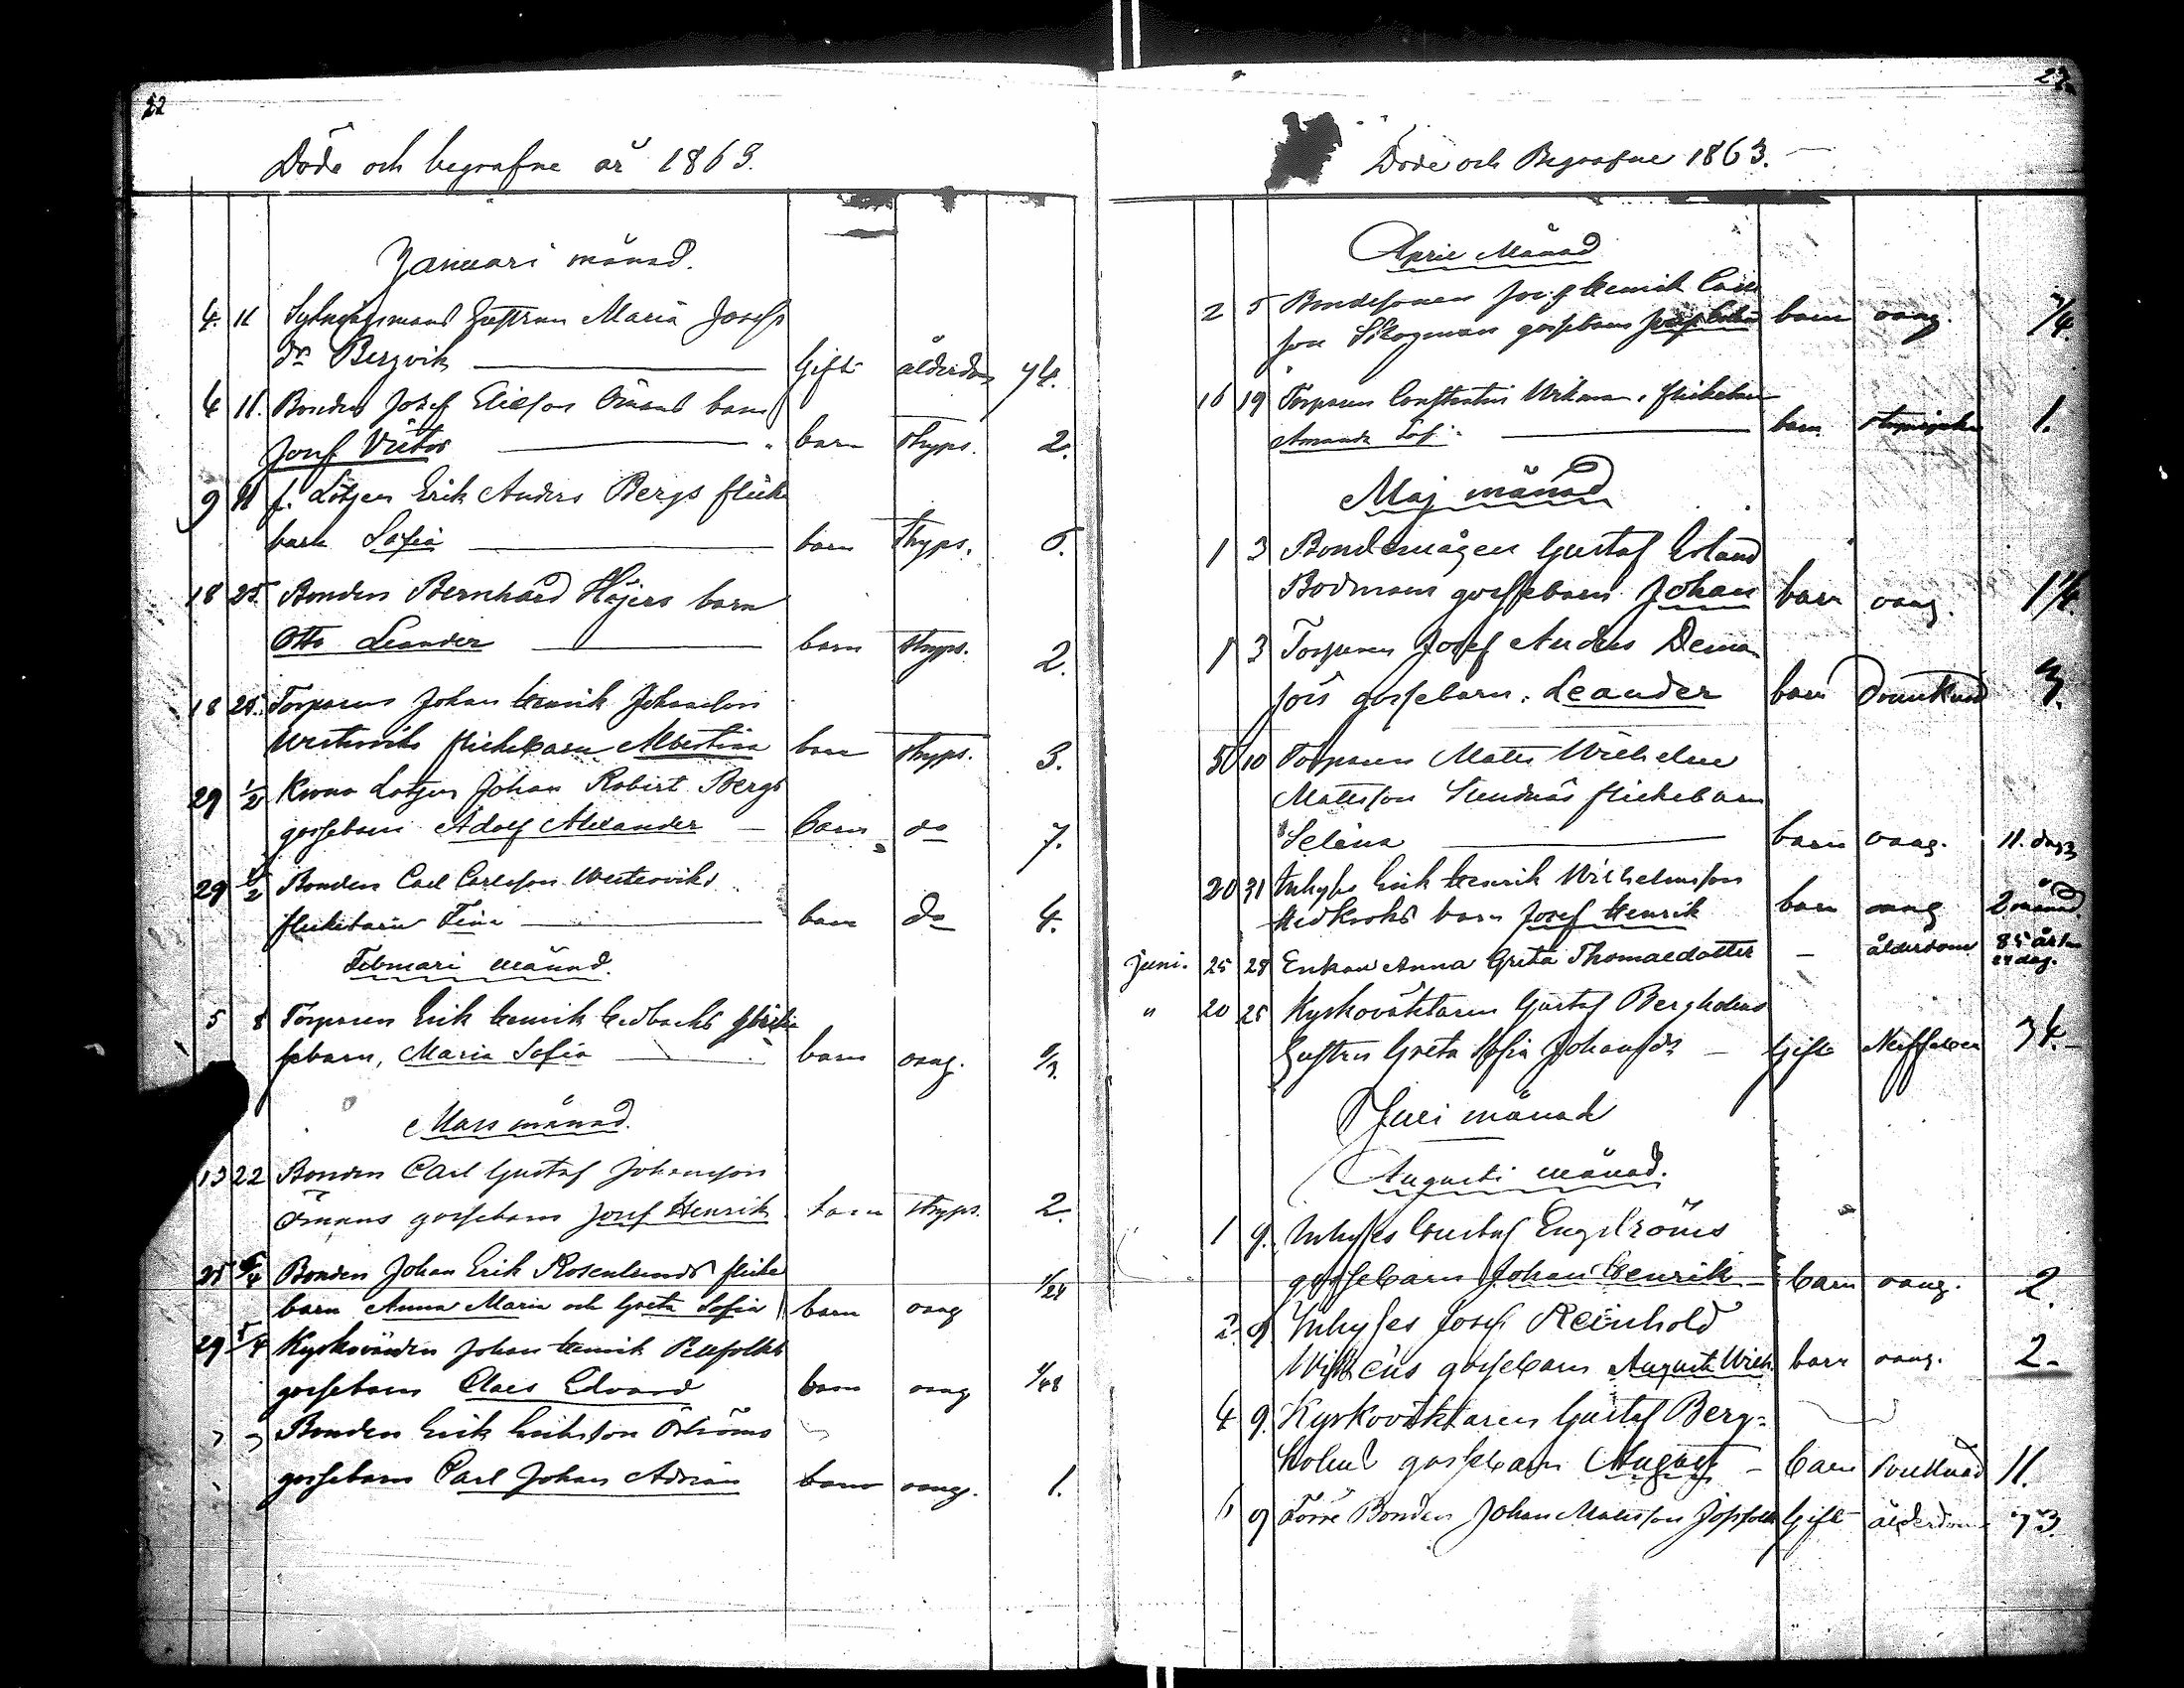 22
Döde och begrafne år 1863.
Januari månad.
4. 11 Hustrun Maria Josefs
dr Bergvik Gift ålderdom 74.
4 11. Bonden Josef Eliesson Ömans barn
Josef Victor barn stryps. 2.
9 11 f. Lotsen Erik Anders Bergs flicke
barn Sofia barn stryps. 6.
18 25. Bonden Bernhard Höjers barn
Otto Leander barn stryps. 2.
18 25. Torparen Johan Henrik Johansson
Westerviks flickebarn Albertina barn stryps. 3.
29 1/2 Krono Lotsen Johan Robert Bergs
gossebarn Adolf Alexander barn do 7.
29 1/2 Bonden Carl Carlsson Westerviks
flickebarn Fina barn do 4.
Februari månad.
5 8 Torparen Erik Henrik Hedbacks
barn, Maria Sofia barn oang.
Mars månad.
13 22 Bonden Carl Gustaf Johansson
Ömans gossebarn Josef Henrik barn stryps. 2.
25 5/4 Bonden Johan Erik Rosenlunds flicke
barn Anna Maria och Greta Sofia barn oang 1/24
29 5/4 Johan Henrik
gossebarn Claes Edvard barn oang 1/48
Bonden Erik Eriksson Öströms
gossebarn Carl Johan Adrian barn oang. 1.
23.
Döde och Begrafne 1863.
April Månad
2 5 Bondesonen Henrik Carls
son Skogman gossebarn barn oang. /4.
16 19 Torparen Constantin Wikman, flickebarn
Amanda Sof. barn 1.
Maj månad
1 3 Bondemågen Gustaf Erland
Bodmans gossebarn Johan barn oang. 1 1/4
1 3 Torparen Josef Anders Deman
fors gossebarn. Leander barn 3.
5 10 Torparen Matts Wilhelm
Mattsson Sundnäs flickebarn
Selina barn oang. 11. dagar
20 31 Inhyses Erik Henrik Wilhelmsson
Hedkroks barn Josef Henrik barn oang 2 månad.
Juni. 25 28 Enkan Anna Greta Thomaedotter – ålderdom 85 år 1 m
24 dag.
" 20 25 Kyrkoväktaren Gustaf Bergholms
Hustru Greta Sofia Johansdr – Gift 34.
Juli månad
Augusti månad.
1 9. Inhyses Gustaf Engströms
gossebarn Johan Henrik – barn oang. 2.
2. 9 Inhyses Josef Reinhold
gossebarn August Wilh. barn oang. 2.
4 9. Kyrkoväktaren Gustaf Berg=
holms gossebarn August – barn 11.
6 9 Förre Bonden Johan Mattsson Gift ålderdom 73.